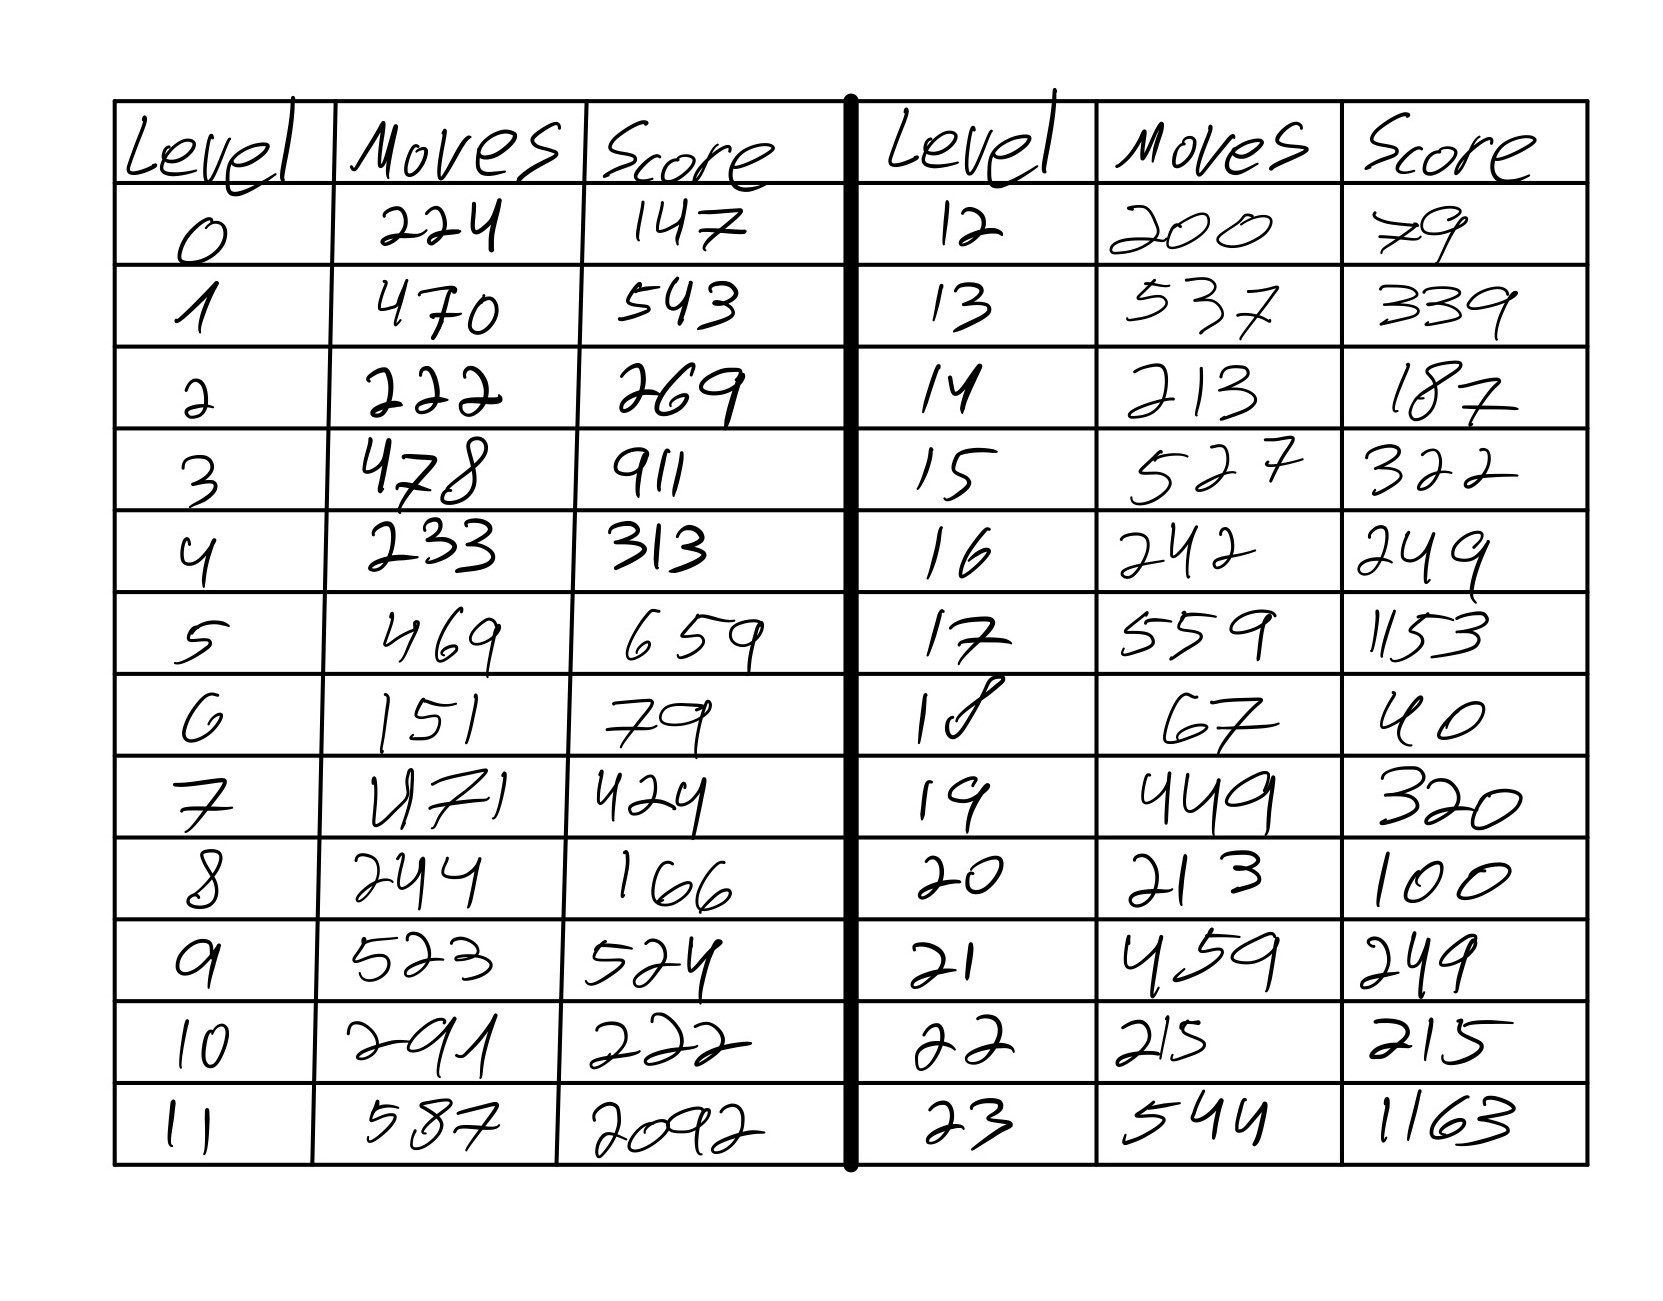 Level Moves Score Level Moves Score
0 224 147 12 200 79
1 470 543 13 537 339
2 222 269 14 213 187
3 478 911 15 527 322
4 233 313 16 242 249
5 469 659 17 559 1153
6 151 79 18 67 40
7 471 424 19 449 320
8 244 166 20 213 100
9 523 524 21 459 249
10 291 222 22 215 215
11 587 2092 23 544 1163